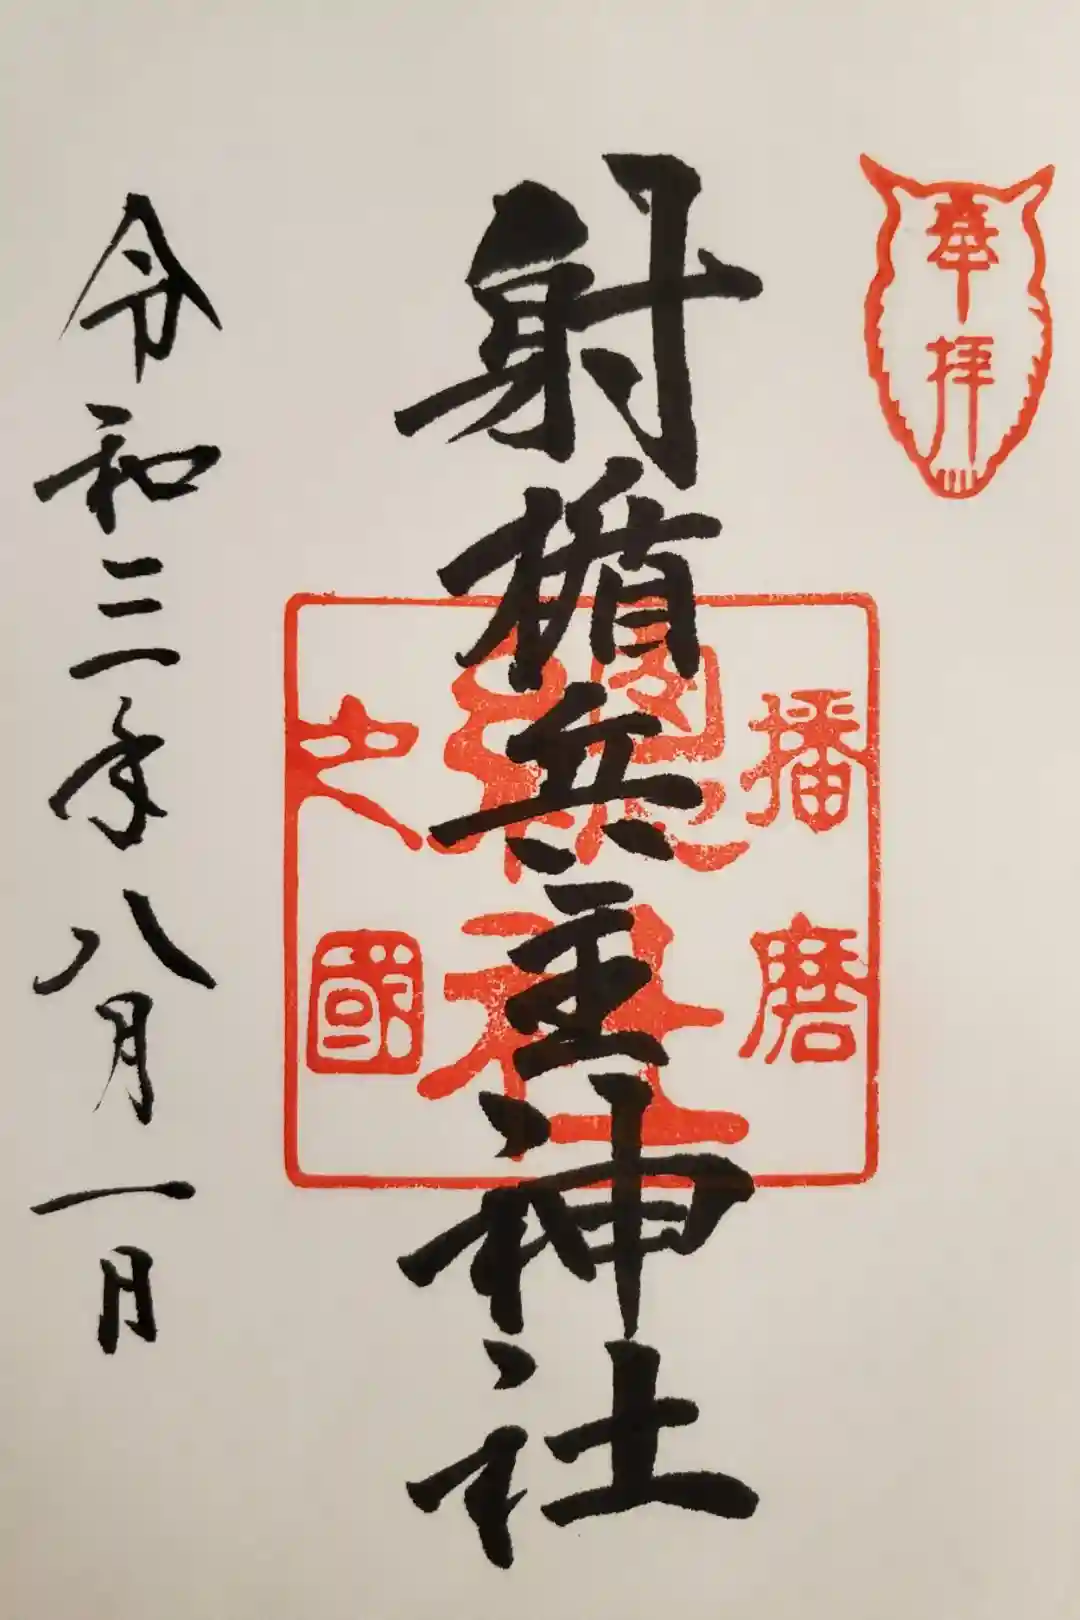 奉拝
播磨
総社
之國
射楯兵主神社
令和三年八月一日